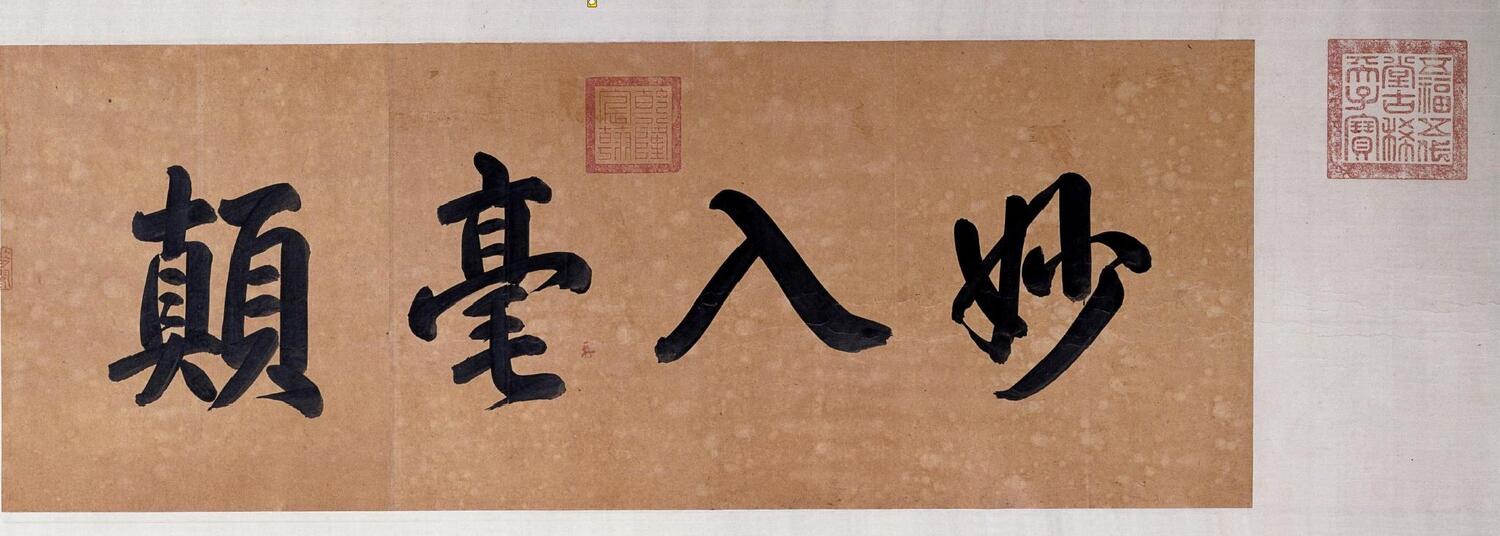 五福五代
堂古稀
天子寶
妙入毫顛
乾隆
宸翰